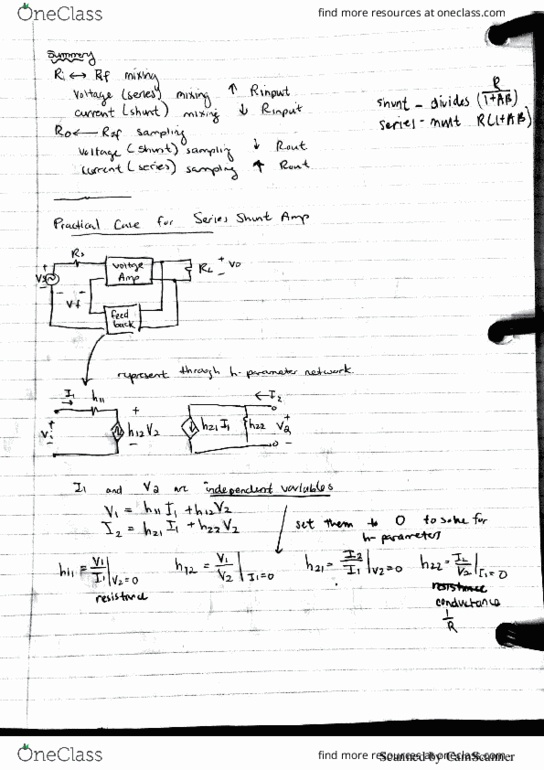 OneClass
find more resources at oneclass.com
Summary
Ri ↔ Rif mixing
Voltage (series) mixing ↑ Rinput
current (shunt) mixing ↓ Rinput
Ro ← Rof sampling
Voltage (shunt) sampling ↓ Rout
current (series) sampling ↑ Rout
shunt - divides (R/(1+AB))
series - mult R(1+AB)
Practical Case for Series Shunt Amp
Rs
Vs
Voltage Amp
RL
+ Vo -
Vf
feed back
represent through h-parameter network
I1 h11
Vi
+ h12V2 -
← I2
h21 I1
h22
V2
I1 and V2 are independent variables
V1 = h11 I1 + h12V2
I2 = h21 I1 + h22V2
set them to 0 to solve for
h-parameters
h11 = V1/I1 | V2=0 h12 = V1/V2 | I1=0 h21 = I2/I1 | V2=0 h22 = I2/V2 | I1=0
resistance
resistance
conductance
1/R
OneClass
find more resources at oneclass.com
Scanned by CamScanner